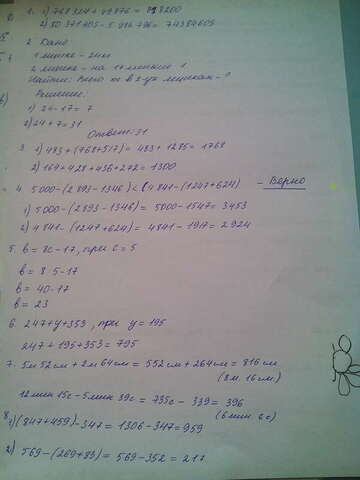 2. Дано
1 мешке - 24 м
2 мешке - на 17 меньше 1
Найти: Всего м в 2-ух мешках - ?
Решение:
1) 24-17= 7
2) 24+7=31
Ответ: 31
3. 1) 483+(768+517)= 483+1285= 1768
2) 164+428+436+272= 1300
4. 5000-(2893-1346)<(4841-(1247+624) - Верно
1) 5000-(2893-1346)= 5000-1547= 3453
2) 4841-(1247+624)= 4841-1917= 2924
5. в= 8с-17, при с=5
в= 8 5-17
в= 40-17
в= 23
6. 247+у+353, при у=195
247+195+353= 795
7. 5м 52см + 2м 64см = 552см + 264см = 816 см
(8м. 16см.)
12мин 15с - 5мин 39с = 735с - 339с = 396
(6мин 6с)
8. 1) (847+459)-347= 1306-347= 959
2) 569-(269+83)= 569-352= 217